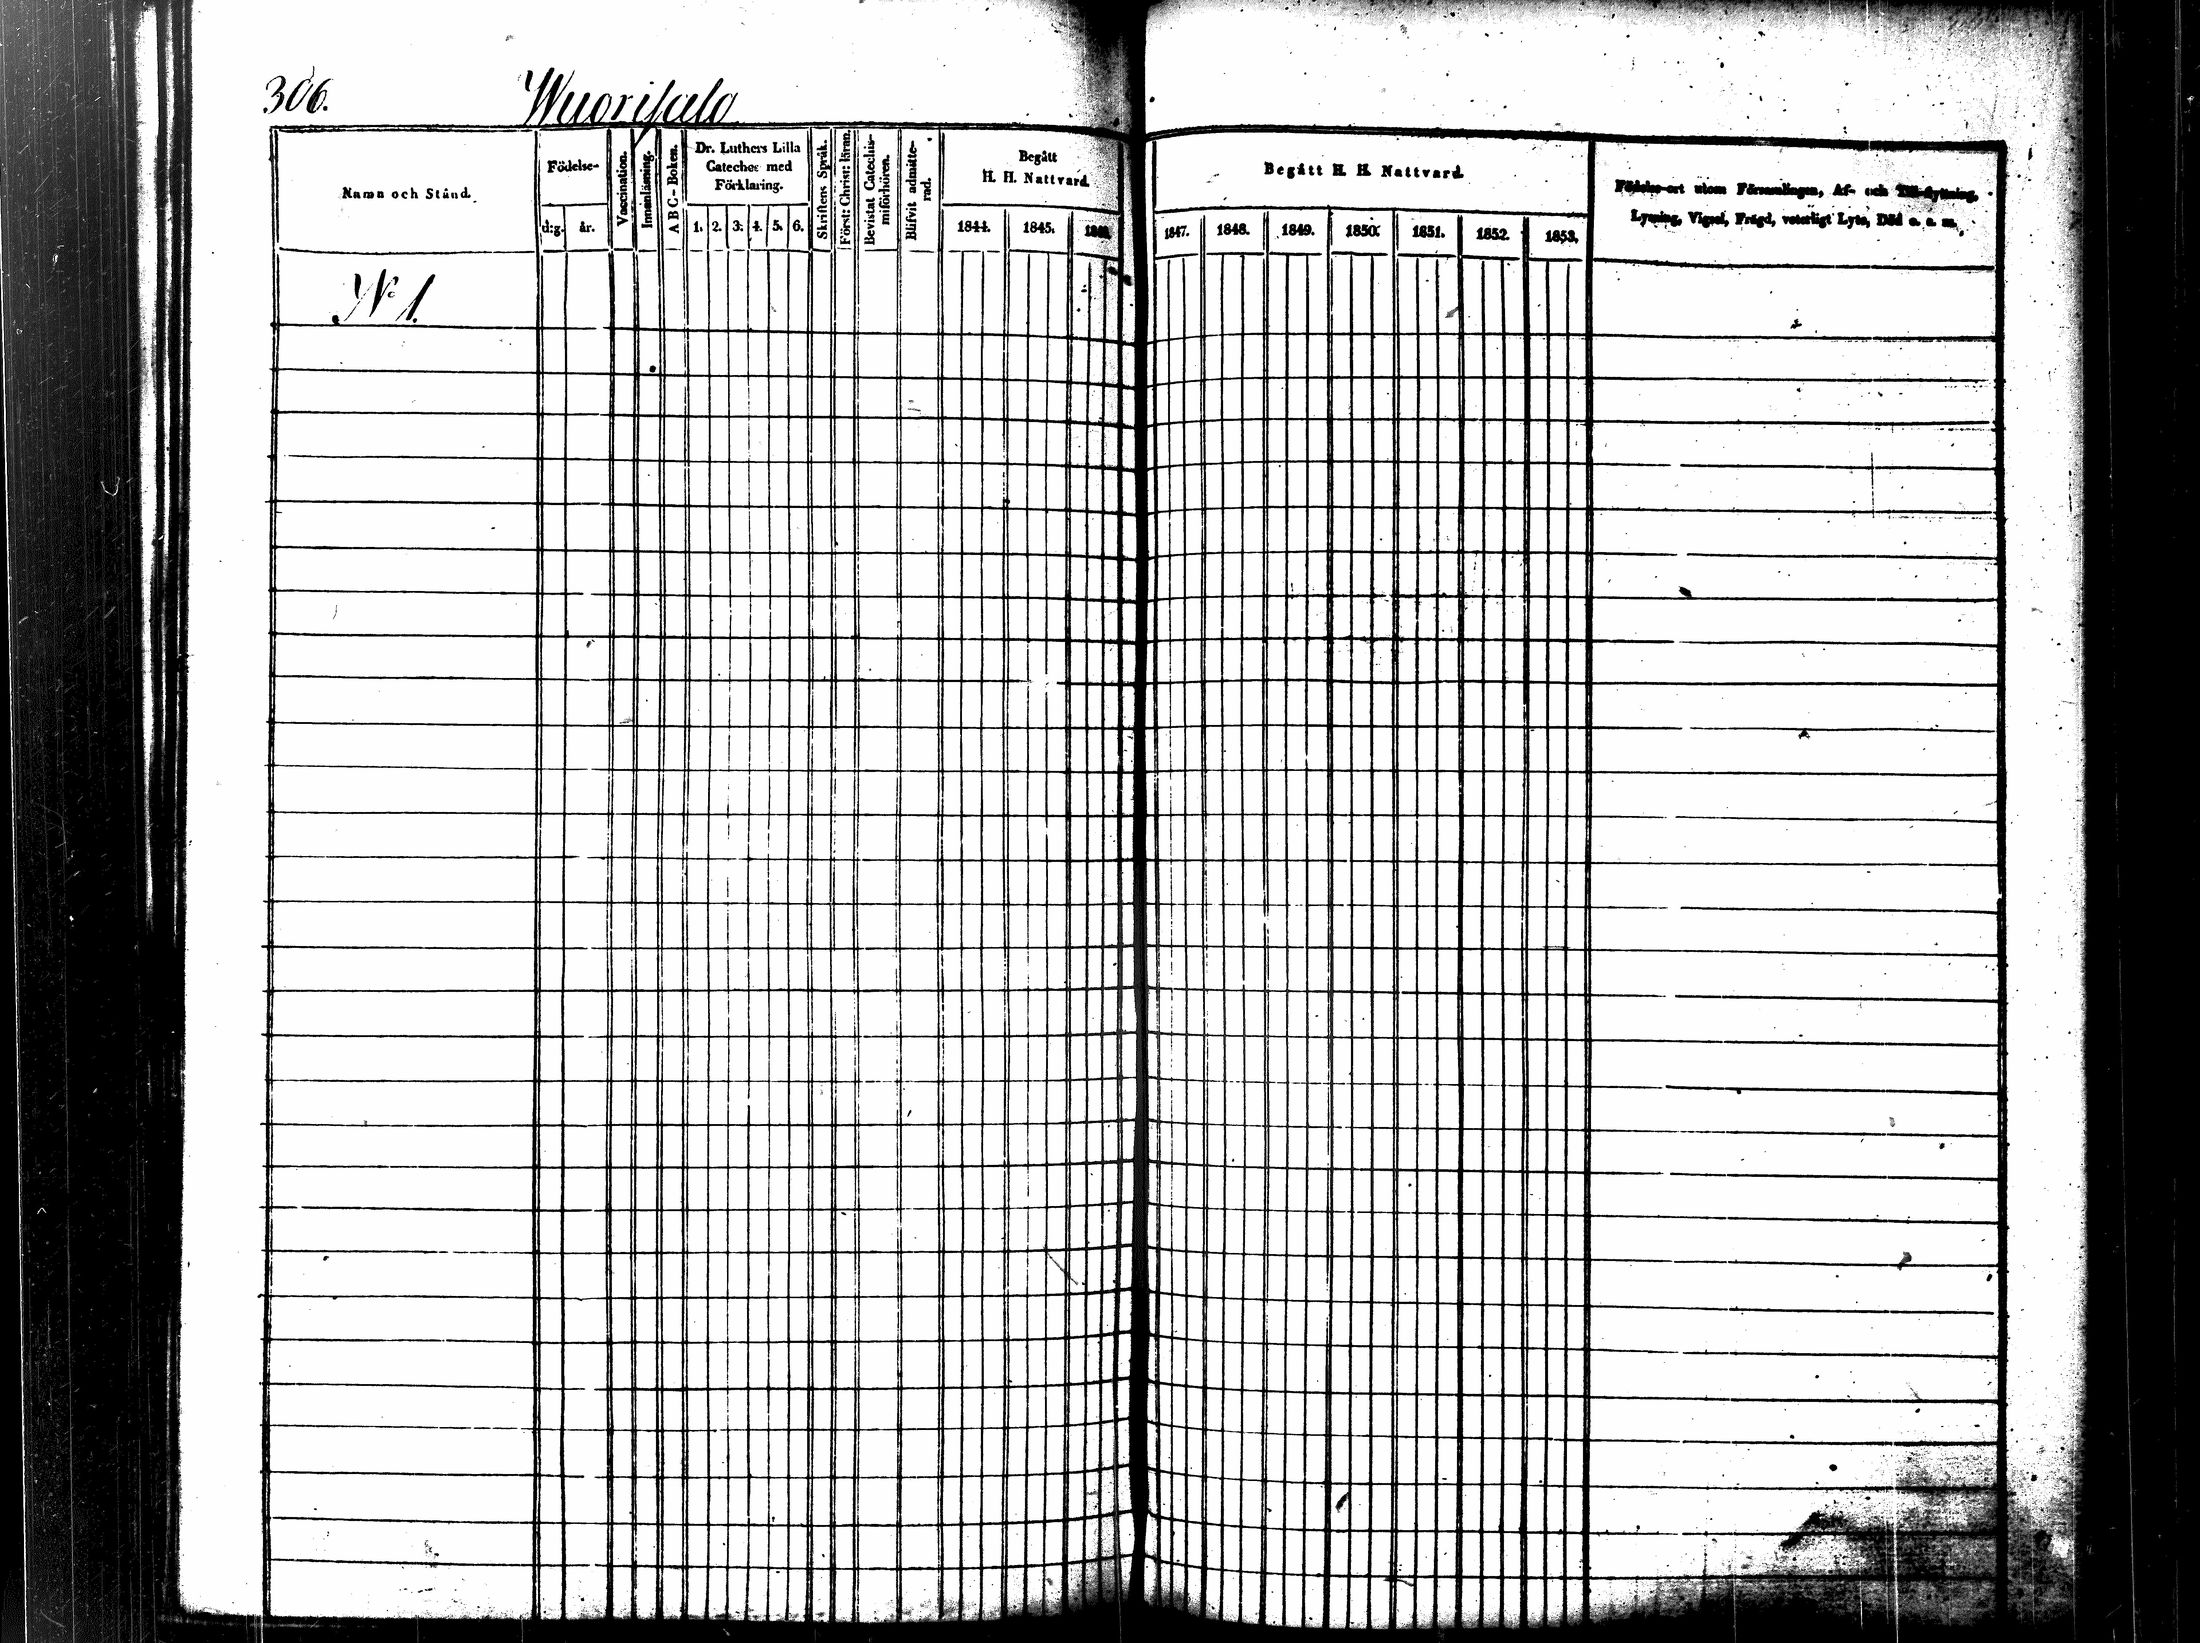 306. Wuorisalo
Namn och Stånd.
Födelse-
d:g. år.
Vaccination.
Innanläsning.
A B C - Boken.
Dr. Luthers Lilla
Cateches med
Förklaring.
1. 2. 3. 4. 5. 6.
Skriftens Språk.
Först: Christ: läran.
Bevistat Catechis-
miförhören.
Blifvit admitte-
rad.
Begått
H. H. Nattvard.
1844. 1845. 1846.
Begått H. H. Nattvard.
1847. 1848. 1849. 1850. 1851. 1852. 1853.
Födelse-ort utom Församlingen, Af- och Till-flyttning,
Lysning, Vigsel, Frägd, veterligt Lyte, Död o. s. m.
No 1.